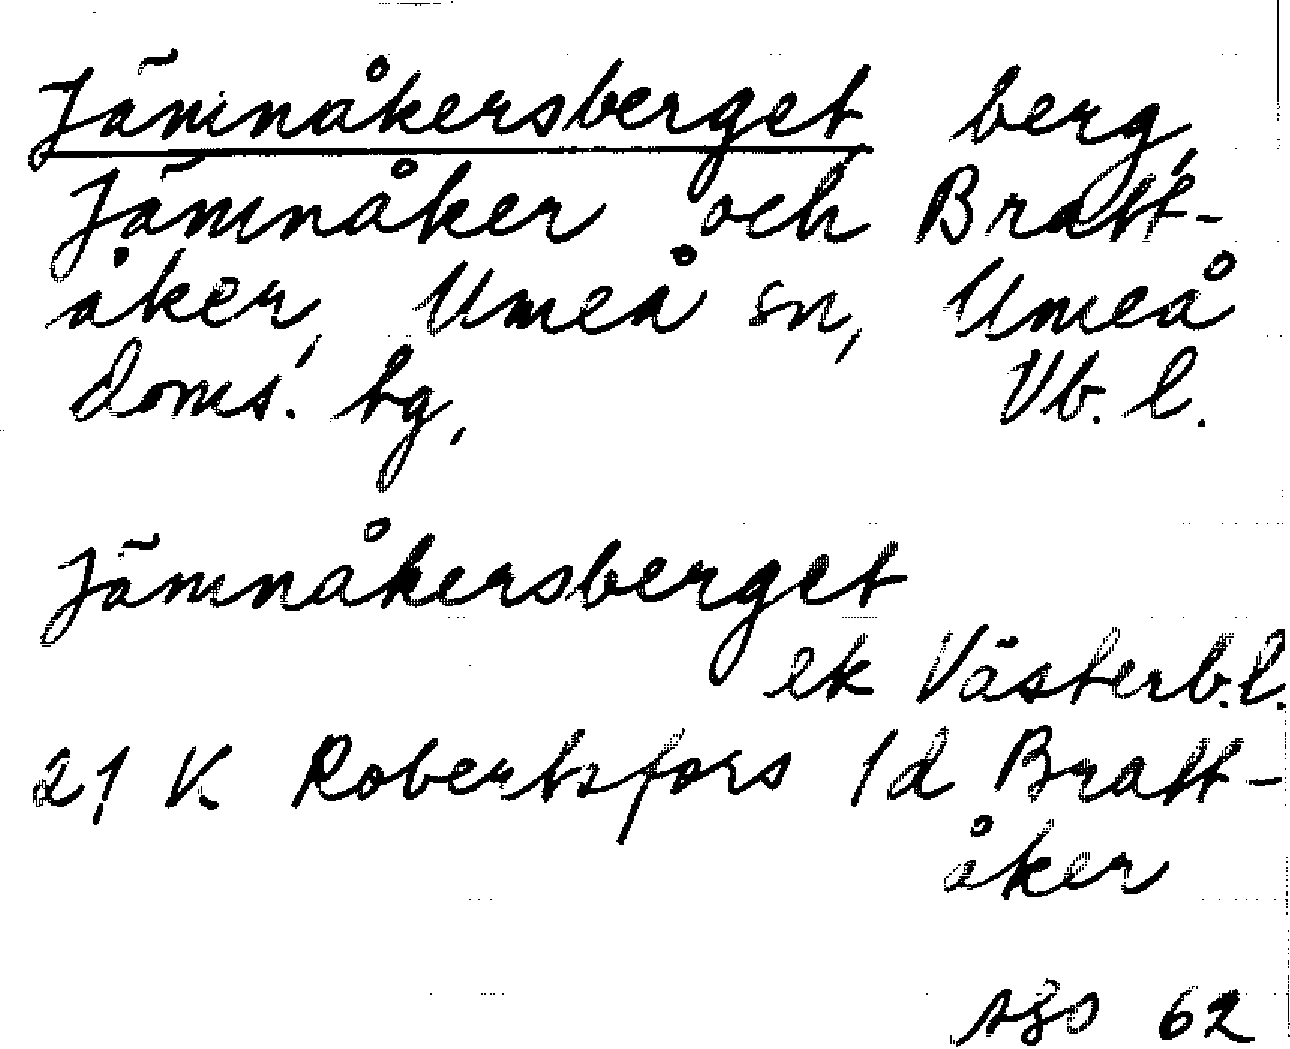 Jämnåkersberget berg,
Jämnåker och Bratt-
åker, Umeå sn, Umeå
doms. tg, Vb. l.
Jämnåkersberget
ek Västerb.l.
21 K Robertsfors 1d Bratt-
åker
62